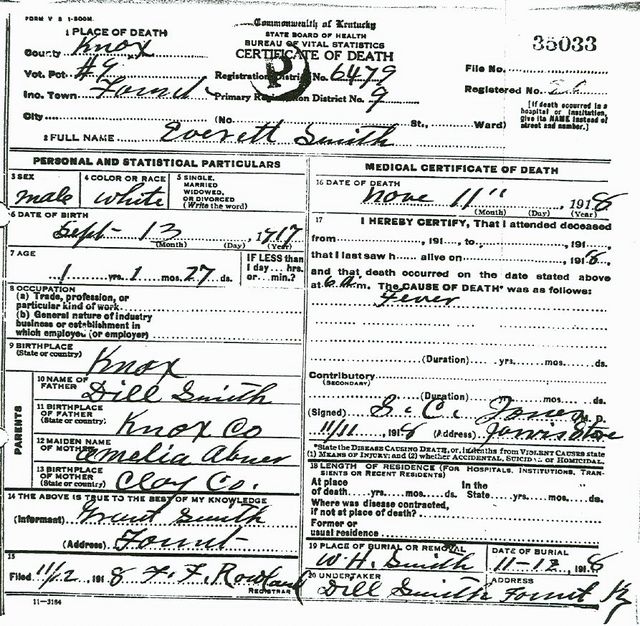 FORM V S 1-500M.
Commonwealth of Kentucky
STATE BOARD OF HEALTH
BUREAU OF VITAL STATISTICS
CERTIFICATE OF DEATH
35033
1 PLACE OF DEATH
County Knox
Vot. Pct #9
Registration District No. 6479
File No.
Inc. Town
Primary Registration District No. 9
Registered No.
City
(No. St., Ward)
[If death occurred in a hospital or institution, give its NAME instead of street and number.]
2 FULL NAME Everett Smith
P
PERSONAL AND STATISTICAL PARTICULARS
3 SEX
male
4 COLOR OR RACE
white
5 SINGLE, MARRIED WIDOWED, OR DIVORCED (Write the word)
6 DATE OF BIRTH
Sept- 13, 1917
(Month) (Day) (Year)
7 AGE
1 yrs. 1 mos. 27 ds.
IF LESS than 1 day... hrs. or... min.?
8 OCCUPATION
(a) Trade, profession, or
particular kind of work
(b) General nature of industry
business or establishment in
which employed (or employer)
9 BIRTHPLACE
(State or country) Knox
PARENTS
10 NAME OF
FATHER Dill Smith
11 BIRTHPLACE
OF FATHER
(State or country) Knox Co
12 MAIDEN NAME
OF MOTHER Amelia Abner
13 BIRTHPLACE
OF MOTHER
(State or country) Clay Co.
14 THE ABOVE IS TRUE TO THE BEST OF MY KNOWLEDGE
(Informant) Smith
(Address)
15
Filed 11/12 1918 F. F. Rowland
REGISTRAR
11-3184
MEDICAL CERTIFICATE OF DEATH
16 DATE OF DEATH
Nove 11", 1918
(Month) (Day) (Year)
17 I HEREBY CERTIFY, That I attended deceased
from, 191, to, 191,
that I last saw h alive on, 1918
and that death occurred on the date stated above
at 6 a m. The CAUSE OF DEATH* was as follows:
Fever
(Duration) yrs. mos. ds.
Contributory
(SECONDARY)
(Duration) yrs. mos. ds.
(Signed) G. C. Jones M. D.
11/11 1918 (Address) Jarvis Store
*State the DISEASE CAUSING DEATH, or, in deaths from VIOLENT CAUSES state
(1) MEANS OF INJURY; and (2) whether ACCIDENTAL, SUICIDAL or HOMICIDAL.
18 LENGTH OF RESIDENCE (FOR HOSPITALS, INSTITUTIONS, TRANSIENTS OR RECENT RESIDENTS)
At place of death yrs. mos. ds. In the State yrs. mos. ds.
Where was disease contracted,
if not at place of death?
Former or
usual residence
19 PLACE OF BURIAL OR REMOVAL
W. H. Smith
DATE OF BURIAL
11-12, 1918
20 UNDERTAKER
Dill Smith
ADDRESS
Ky